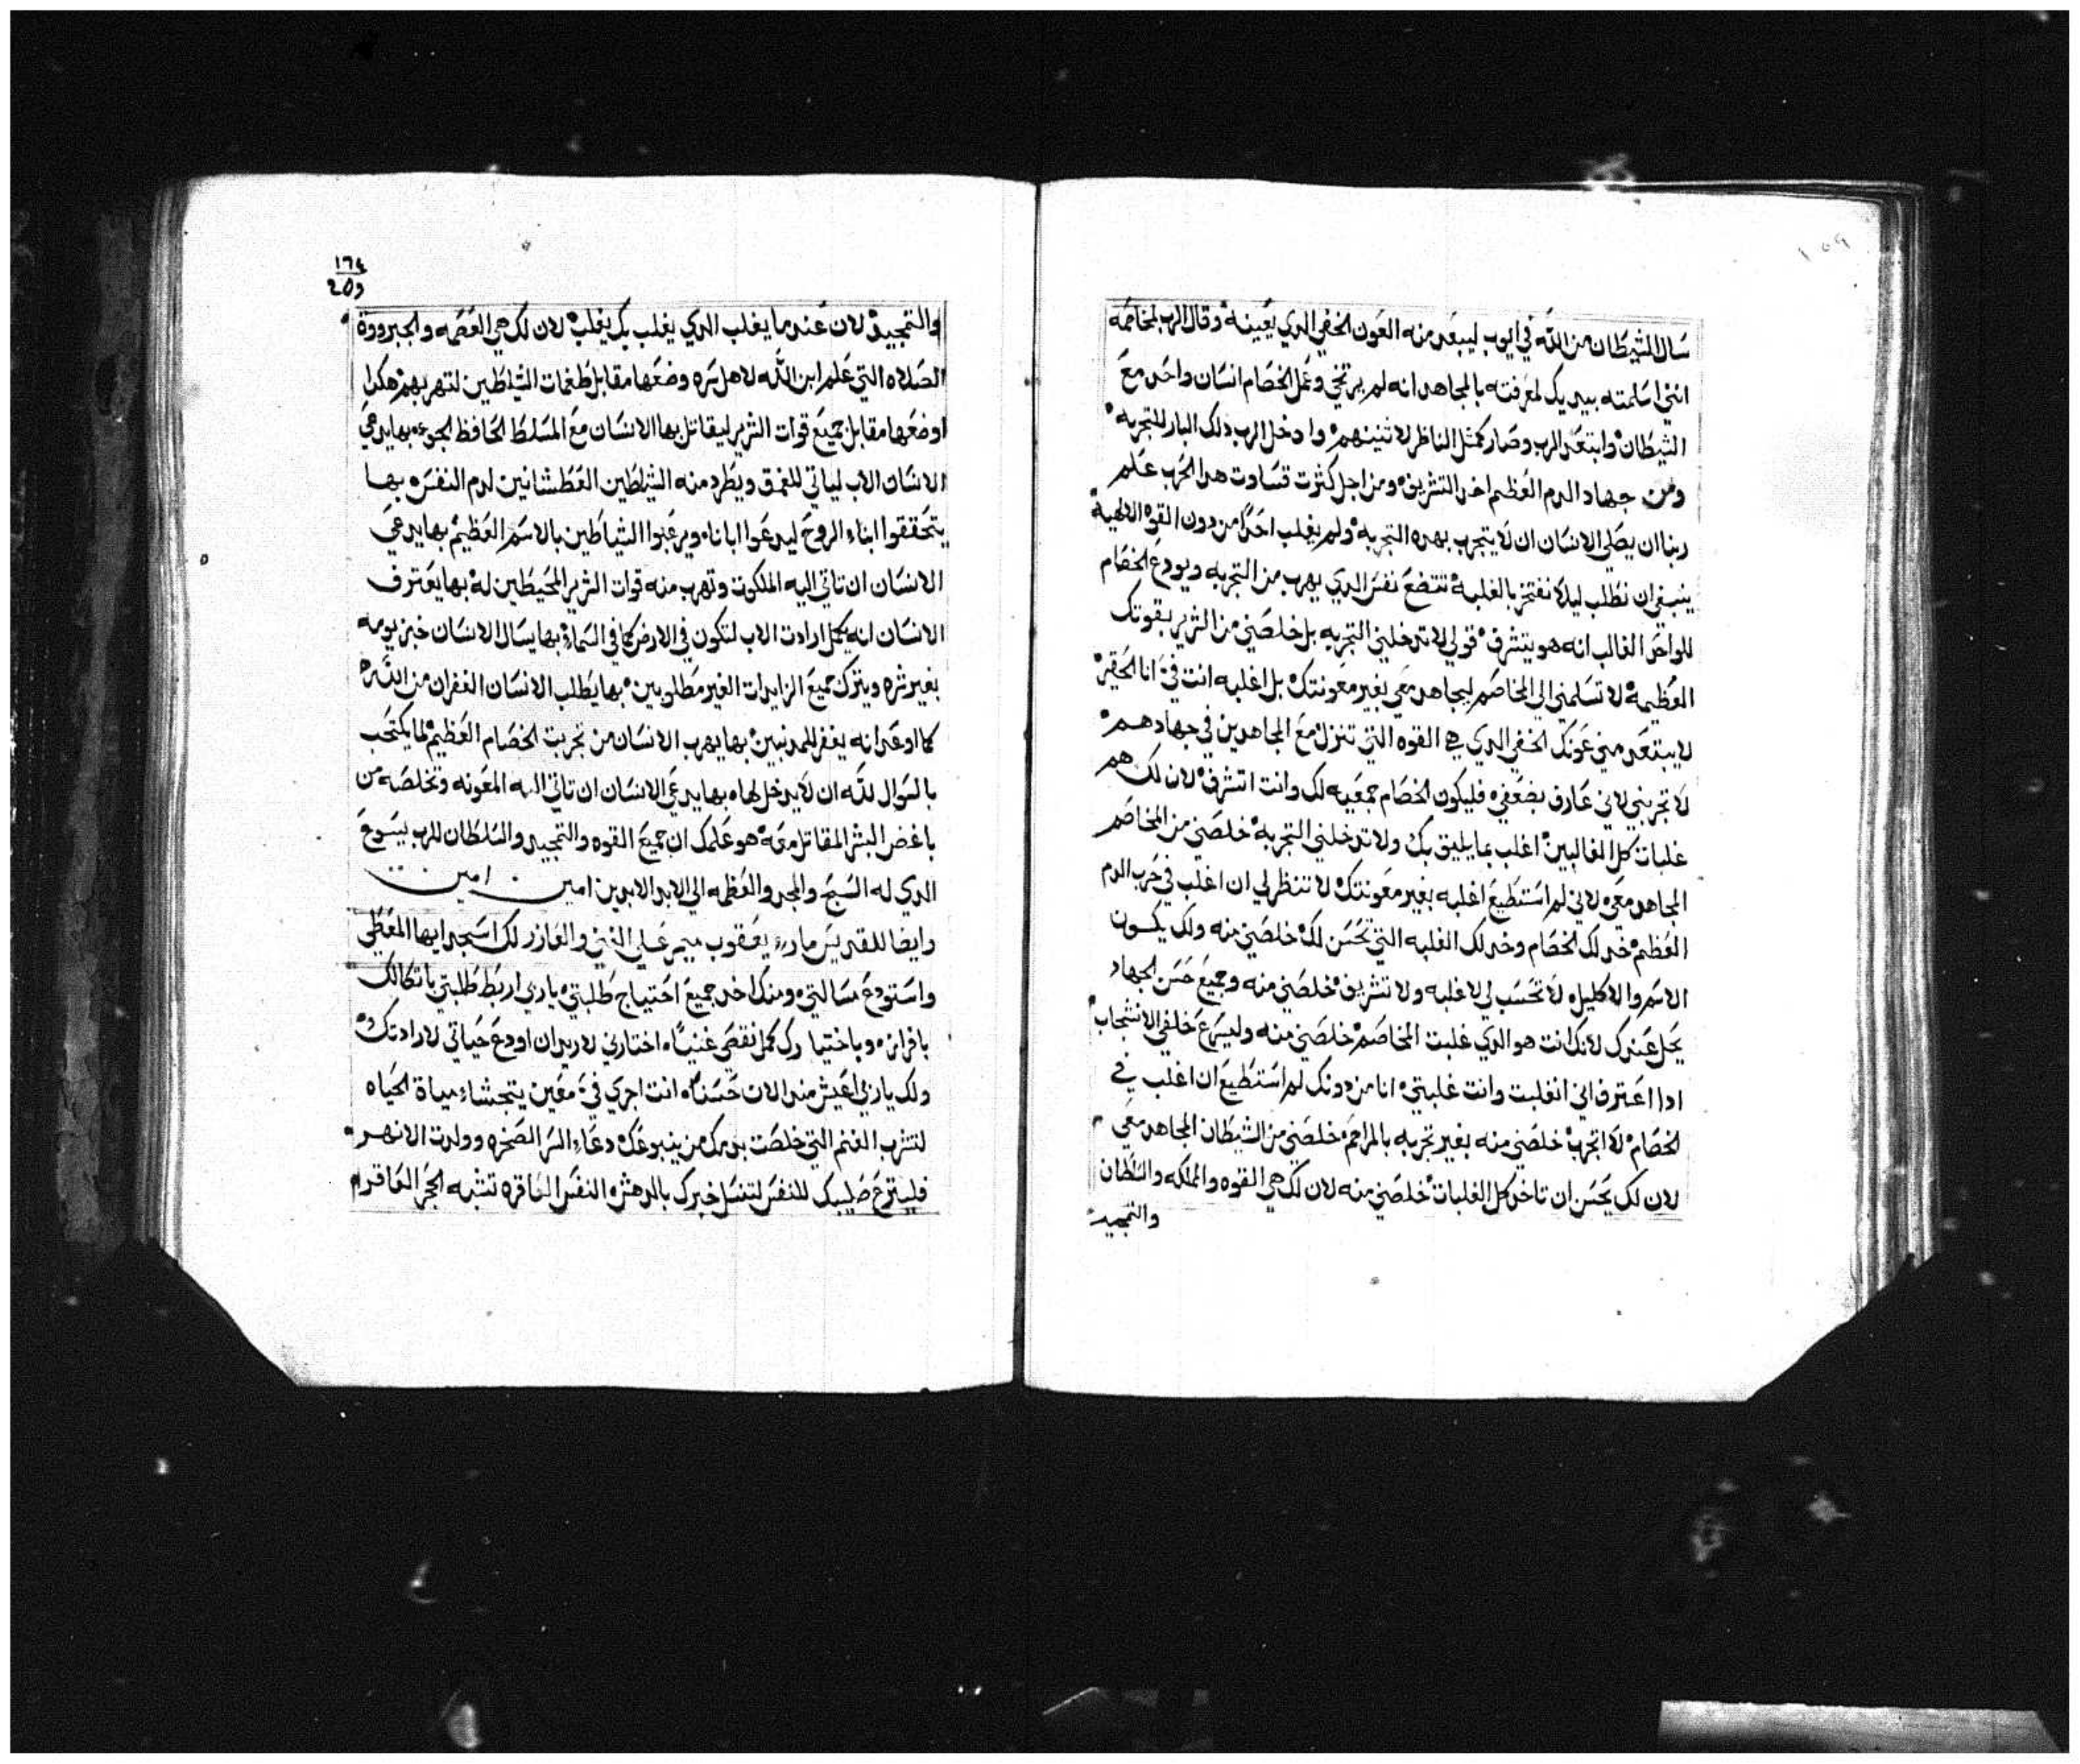 ١٥٩
سال الشيطان من الله في ايوب ليبعد منه العون الخفي الدي يعينه وقال الرب لمخاصمه
انني اسلمته بيديك لمعرفته بالمجاهد انه لم يرتخي وعمل الخصام انسان واحد مع
الشيطان وابتعد الرب وصار كمثل الناظر لاثنينهم وادخل الرب دلك البار للتجربه
ومن جهاد الدم العظيم اخد التشريف ومن اجل كثرت قساوت هدا الحرب علم
ربنا ان يصلي الانسان ان لا يتجرب بهده التجربه ولم يغلب احدًا من دون القوه الالهية
ينبغي ان نطلب ليلا نفتخر بالغلبه تتضع نفس الدي يهرب من التجربه ويودع الخصام
للواحد الغالب انه هو يتشرف قولي لا تدخلني التجربه بل خلصني من الشرير بقوتك
العظيمه لا تسلمني الي المخاصم ليجاهد معي بغير معونتك بل اغلبه انت في انا الحقير
لا يبتعد مني عونك الخفي الدي هي القوه التي تنزل مع المجاهدين في جهادهم
لا تجربني لاني عارف بضعفي فليكون الخصام جمعيه لك وانت اتشرف لان لك هم
غلبات كل الغالبين اغلب بما يليق بك ولا تدخلني التجربه خلصني من المخاصم
المجاهد معي لاني لم استطيع اغلبه بغير معونتك لا تنظر لي ان اغلب في حرب الدم
العظم خد لك الخصام وخد لك الغلبه التي تحسن لك خلصني منه ولك يكون
الاسم والاكليل لا تحسب لي لا غلبه ولا تشريف خلصني منه وجميع حسن الجهاد
يحل عندك لانك انت هو الدي غلبت المخاصم خلصني منه وليسرع خلفي الانشجاب
ادا اعترف اني انغلبت وانت غلبتي انا من دونك لم استطيع ان اغلب في
الخصام لا اتجرب خلصني منه بغير تجربه بالمراحم خلصني من الشيطان المجاهد معي
لان لك يحسن ان تاخد كل الغلبات خلصني منه لان لك هي القوه والملكه والسلطان
والتمجيد
١٦٤
والتمجيد لان عندما يغلب الدي يغلب بك يغلب لان لك هي العضمه والجبرووة
الصلاه التي علم ابن الله لاهل سره وضعها مقابل طغمات الشياطين لتهربهم هكدا
اوضعها مقابل جميع قوات الشرير ليقاتل بها الانسان مع المسلط الحافظ الجو بها يدعي
الانسان الاب لياتي للغمق ويطرد منه الشياطين العطشانين لدم النفس بها
يتحققوا ابناء الروح ليدعوا ابانا ويرعبوا الشياطين بالاسم العظيم بها يدعي
الانسان ان تاتي اليه الملكوت وتهرب منه قوات الشرير المحيطين له بها يعترف
الانسان انه يكمل ارادت الاب لتكون في الارض كما في السماء بها يسال الانسان خبز يومه
بغير شره ويترك جميع الزايدات الغير مطلوبين بها يطلب الانسان الغفران من الله
كما اوعد انه يغفر للمدنبين بها يهرب الانسان من تجربت الخصام العظيم لما يكتحب
بالسوال لله ان لا يدخل لها بها يدعي الانسان ان تاتي اليه المعونه وتخلصه من
باغض البشر المقاتل معه هو علمك ان جميع القوه والتمجيد والسلطان للرب يسوع
الدي له السبح والمجد والعظمه الي الابد الابدين امين امين
وايضا للقديس ماري يعقوب ميمر علي الغني والعازر لك اسجد ايها المعطي
واستودع مسالتي ومنك اخد جميع احتياج طلبتي ياربي اربط طلبتي باتكالك
بافراز وباختيارك كمل نقصي غنيًا اختارني لاريدان اودع حياتي لارادتك
ولك ياربي اعيش مند الان حسنًا انت اجري في معين يتجشاء مياة الحياه
لتشرب الغنم التي خلصت بدمك من ينبوعك دعاء السر الصخره وولدت الانهر
فليتزع صليبك للنفس لتغسل خبرك بالدهش النفس العاقره تشبه الحجر العاقر